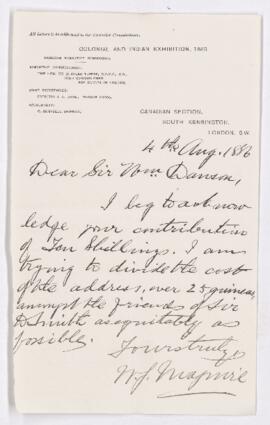 COLONIAL AND INDIAN EXHIBITION, 1886
CANADIAN SECTION,
SOUTH KENSINGTON,
LONDON, S.W.
4th Aug. 1886
Dear Sir Wm Dawson,
I beg to acknow
ledge your contribution
of Ten Shillings. I am
trying to divide the cost
of the address, over 25 guineas,
amongst the friends of Sir
D. Smith as equitably as
possible.
Yours truly
W. J. Maguire